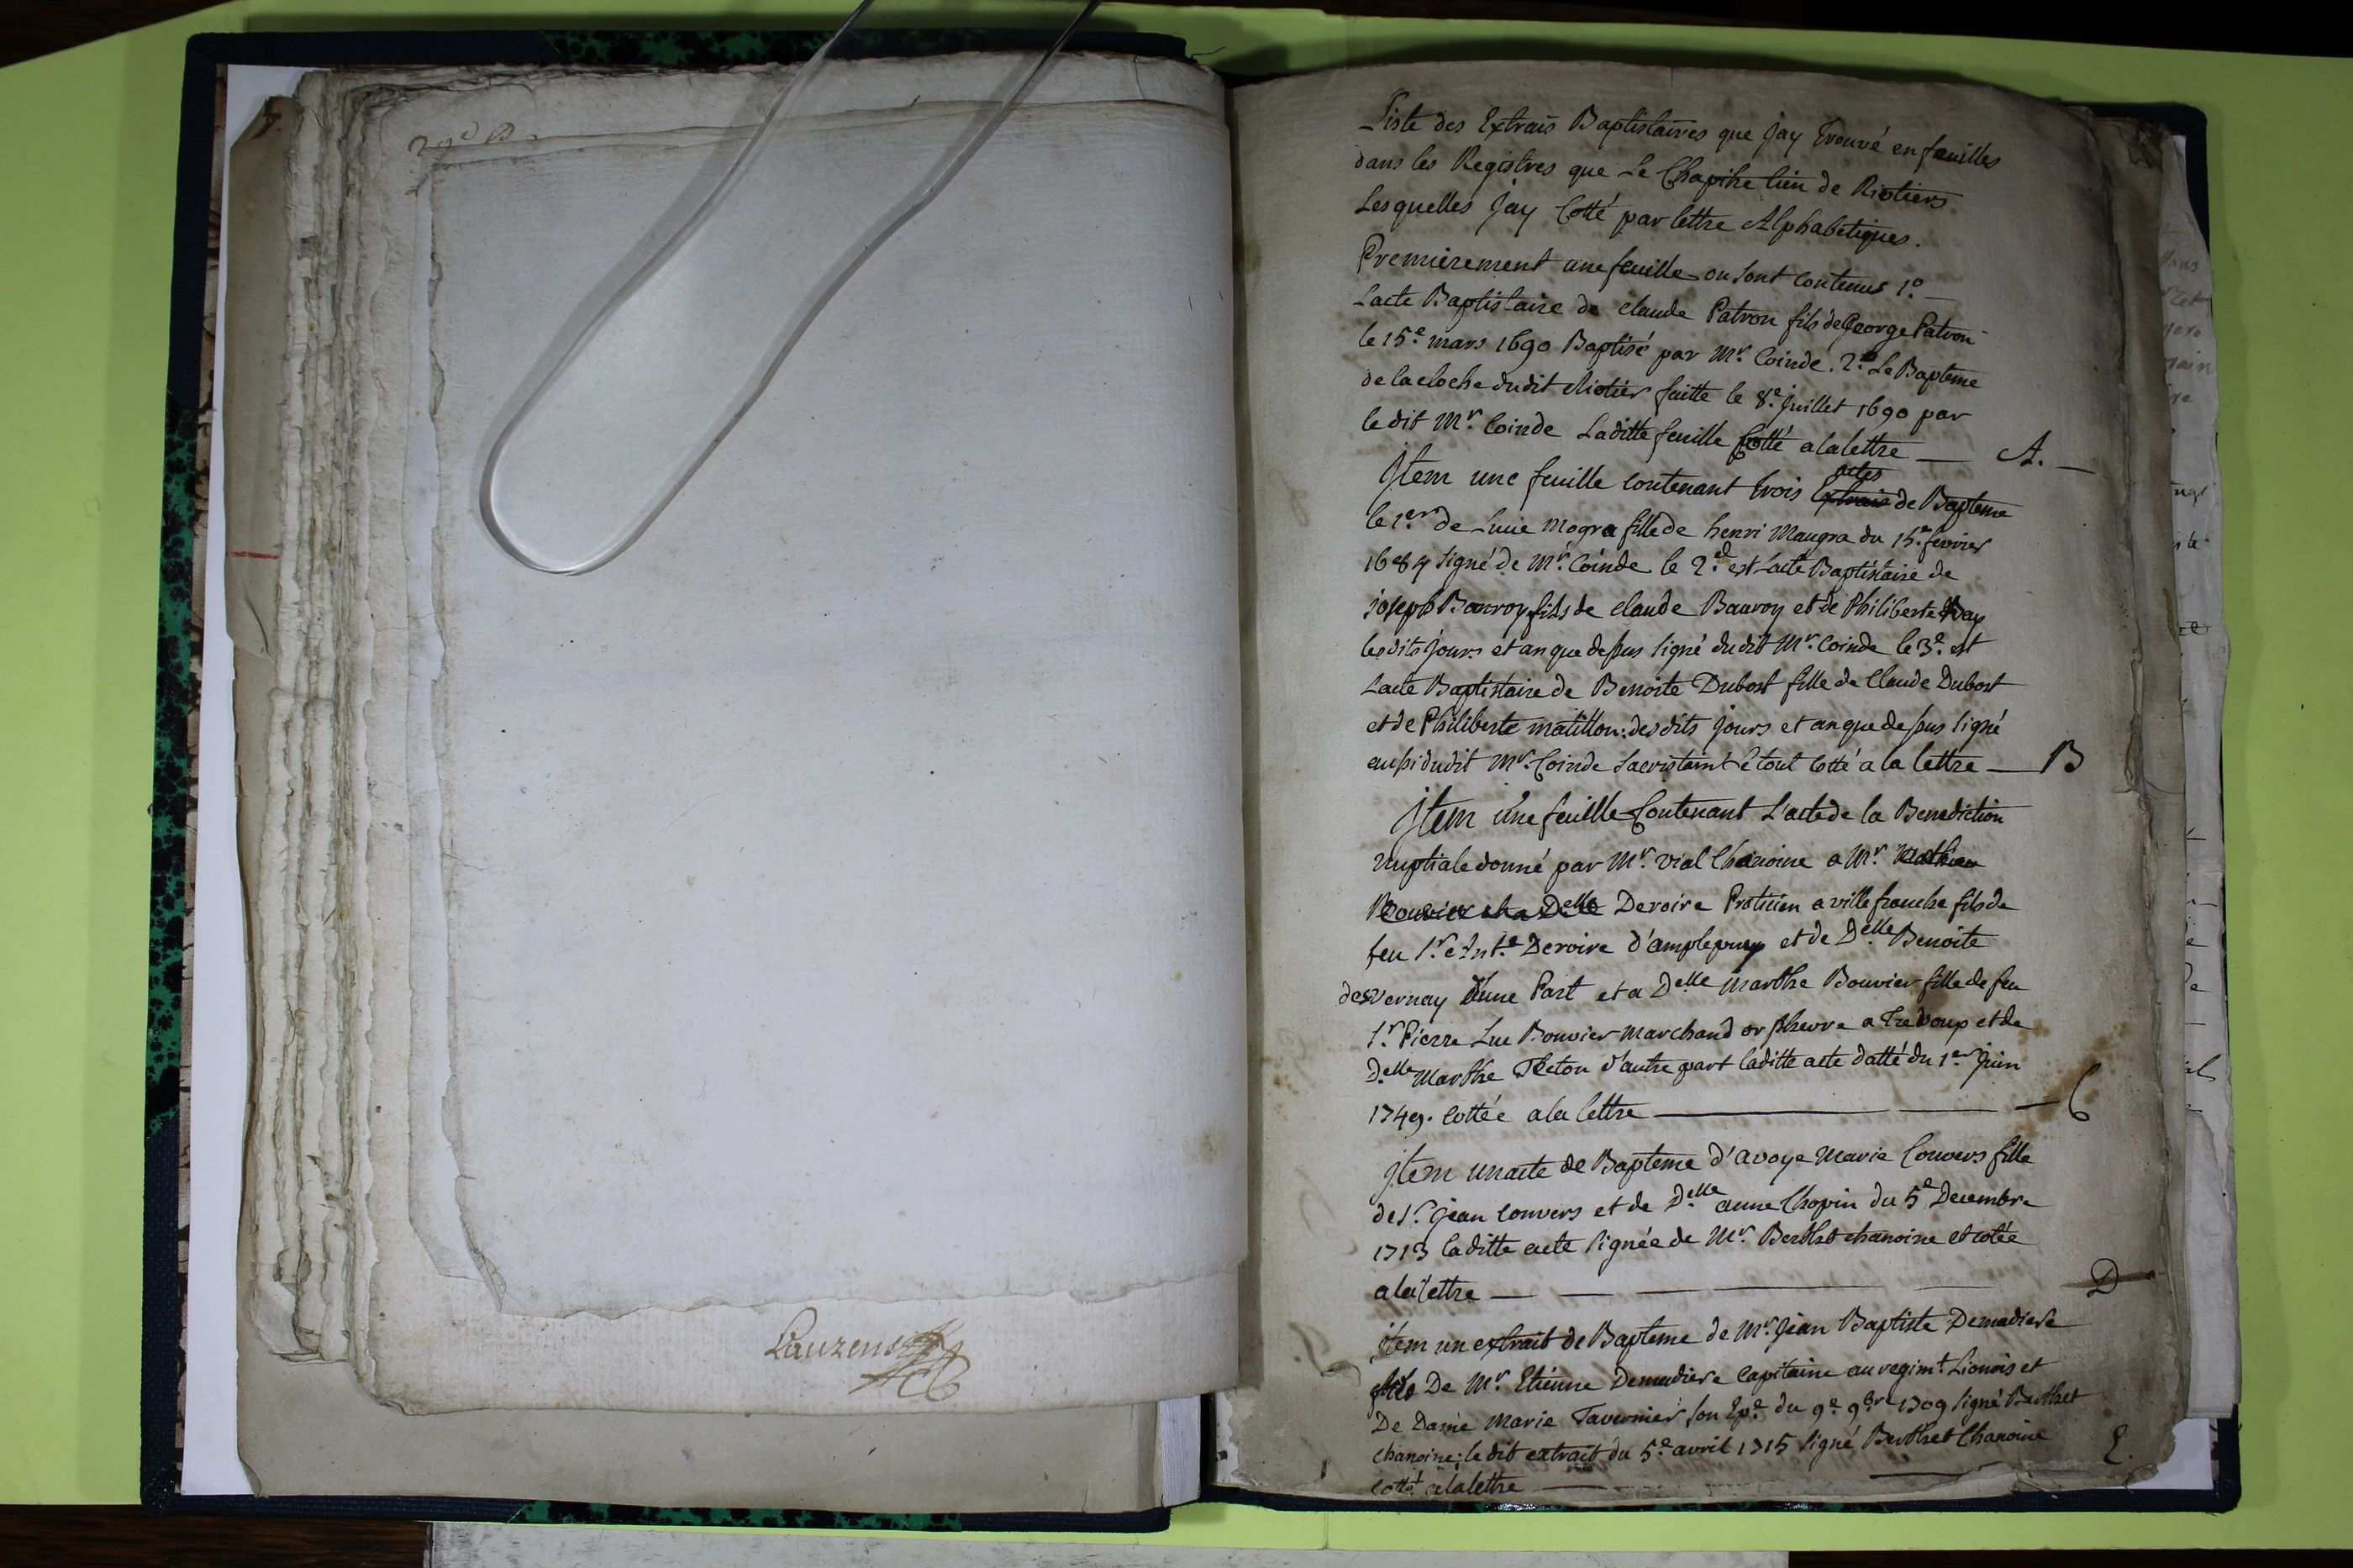 Liste des Extrais Baptistaires que jay trouvé en feuilles
dans les Registres que Le Chapitre tien de Riotiers
Lesquelles Jay Cotté par lettre Alphabetiques.
Premierement une feuille ou sont contenus 1.o
Lacte Baptistaire de claude Patron fils de George Patron
le 15.e mars 1690 Baptisé par Mr. Coinde. 2.o Le Bapteme
de la cloche dudit Riotier faitte le 8.e Juillet 1690 par
le dit Mr. Coinde Laditte feuille Cotté a la lettre — A. —
actes
Jtem une feuille contenant trois Extrais de Bapteme
le 1.er de Lucie Mogra fille de henri Maugra du 15.e fevrier
1684 signé de Mr. Coinde le 2.d est Lacte Baptistaire de
joseph Bauroy fils de claude Bauroy et de Philiberte
lesdits jours et an que dessus signé dudit Mr. Coinde le 3.e est
Lacte Baptistaire de Benoite Dubost fille de Claude Dubost
et de Philiberte matillon: desdits jours et an que dessus signé
aussi dudit Mr. Coinde Sacristain le tout cotté a la lettre — B
Jtem une feuille Contenant L'acte de la Benediction
nuptiale donné par Mr. vial Chanoine a Mr.
Bouvier et a Delle Deroire Praticien a ville franche fils de
feu Sr. Ant.e Deroire d'amplepuy et de Delle Benoite
desvernay d'une Part et a Delle Marthe Bouvier fille de feu
Sr. Pierre Luc Bouvier Marchand orphevre a Trevoux et de
Delle Marthe Teton d'autre part laditte acte datté du 1.er Juin
1749. cottée a la lettre — C
Jtem un acte de Bapteme d'avoye Marie Convers fille
de Sr. Jean convers et de Delle anne Chopin du 5.e Decembre
1713 laditte acte signée de Mr. Berthet chanoine et cotée
a la lettre — D
Jtem un extrait de Bapteme de Mr. Jean Baptiste Demadiere
fils De Mr. Etienne Demadiere Capitaine au regim.t Lionois et
De Dame Marie Tavernier son Ep.e du 9.e 9bre 1709 signé Berthet
chanoine: le dit extrait du 5.e avril 1715 signé Berthet Chanoine
cotté a la lettre — E.